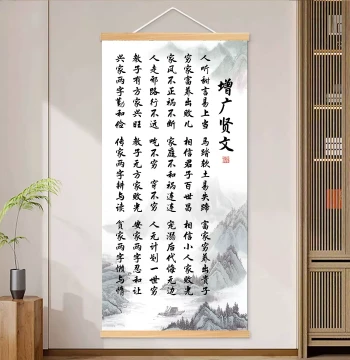 增广贤文
人听甜言易上当 马踏软土易失蹄 富家穷养出贵子
穷家富养出败儿 相信君子百世昌 相信小人家败光
家风不正祸不断 家庭不和祸连连 宠溺后代悔无边
人走邪路行不远 吃不穷 穿不穷 人无计划一世穷
教子有方家兴旺 教子无方家败光 安家两字忍和让
兴家两字勤和俭 传家两字耕与读 家两字懒与惰